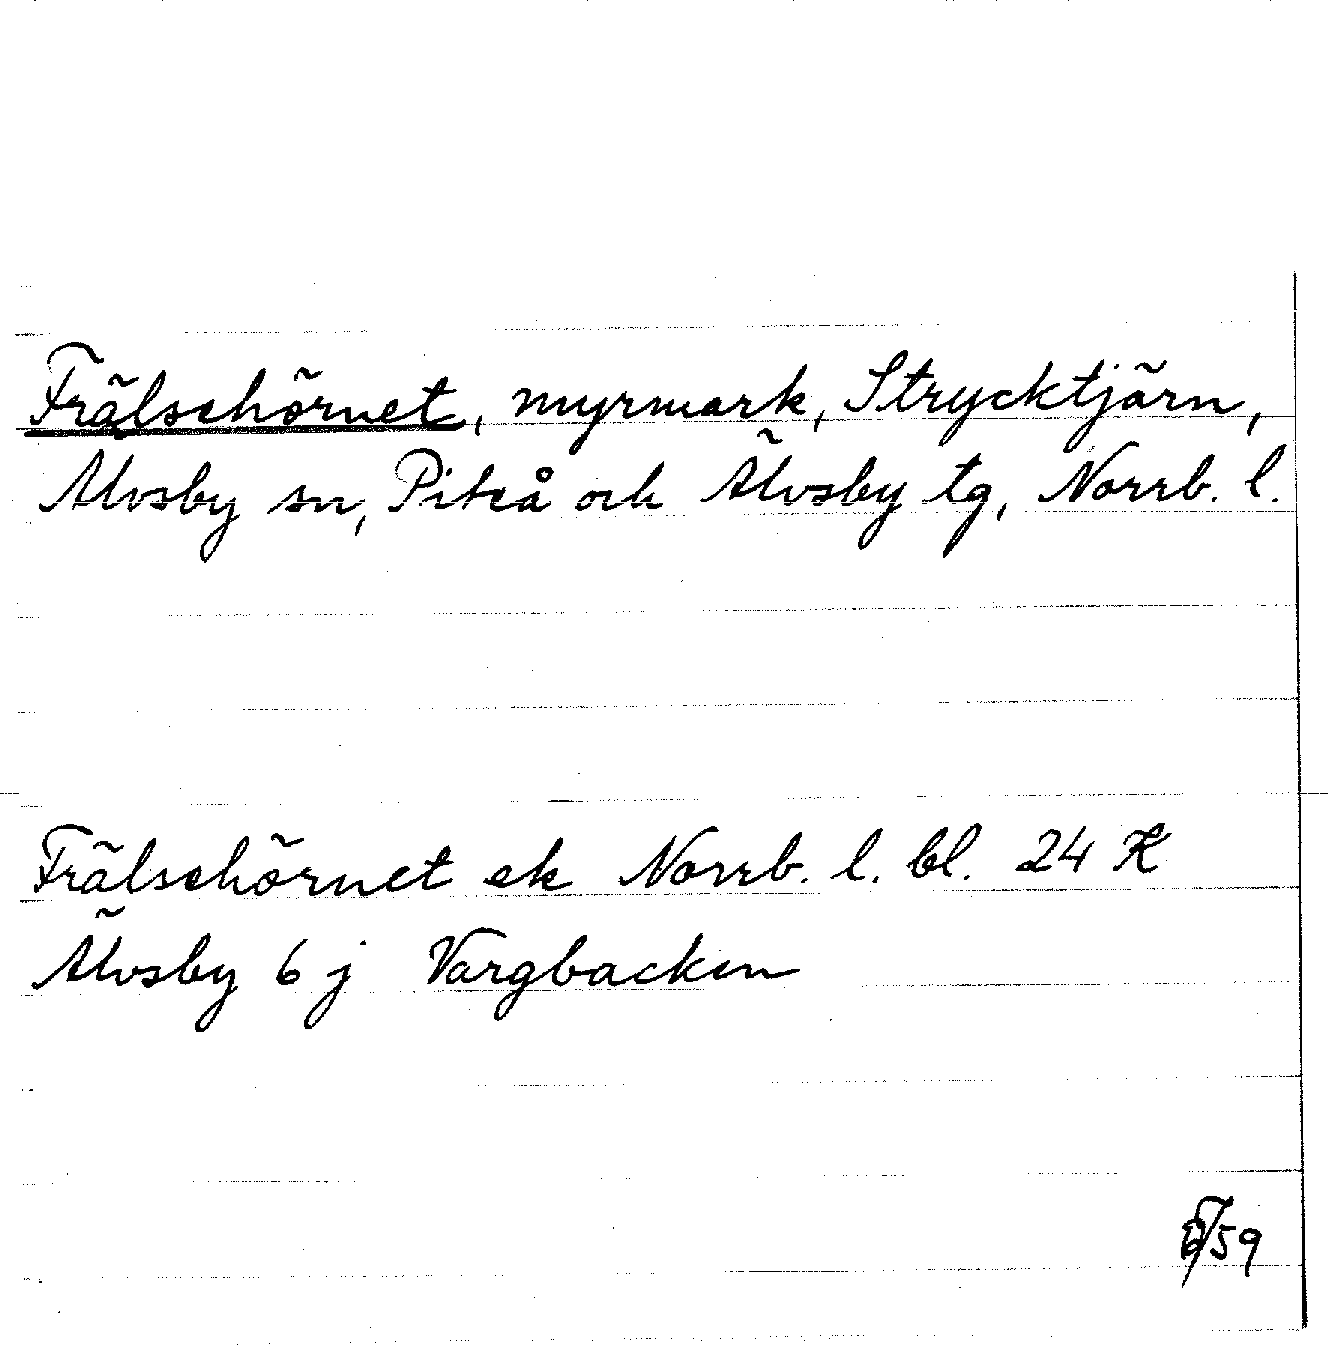 Frälsehörnet, myrmark, Strycktjärn,
Älvsby sn, Piteå och Älvsby tg, Norrb. l.
Frälsehörnet ek Norrb. l. bl. 24 K
Älvsby 6 j Vargbacken
59